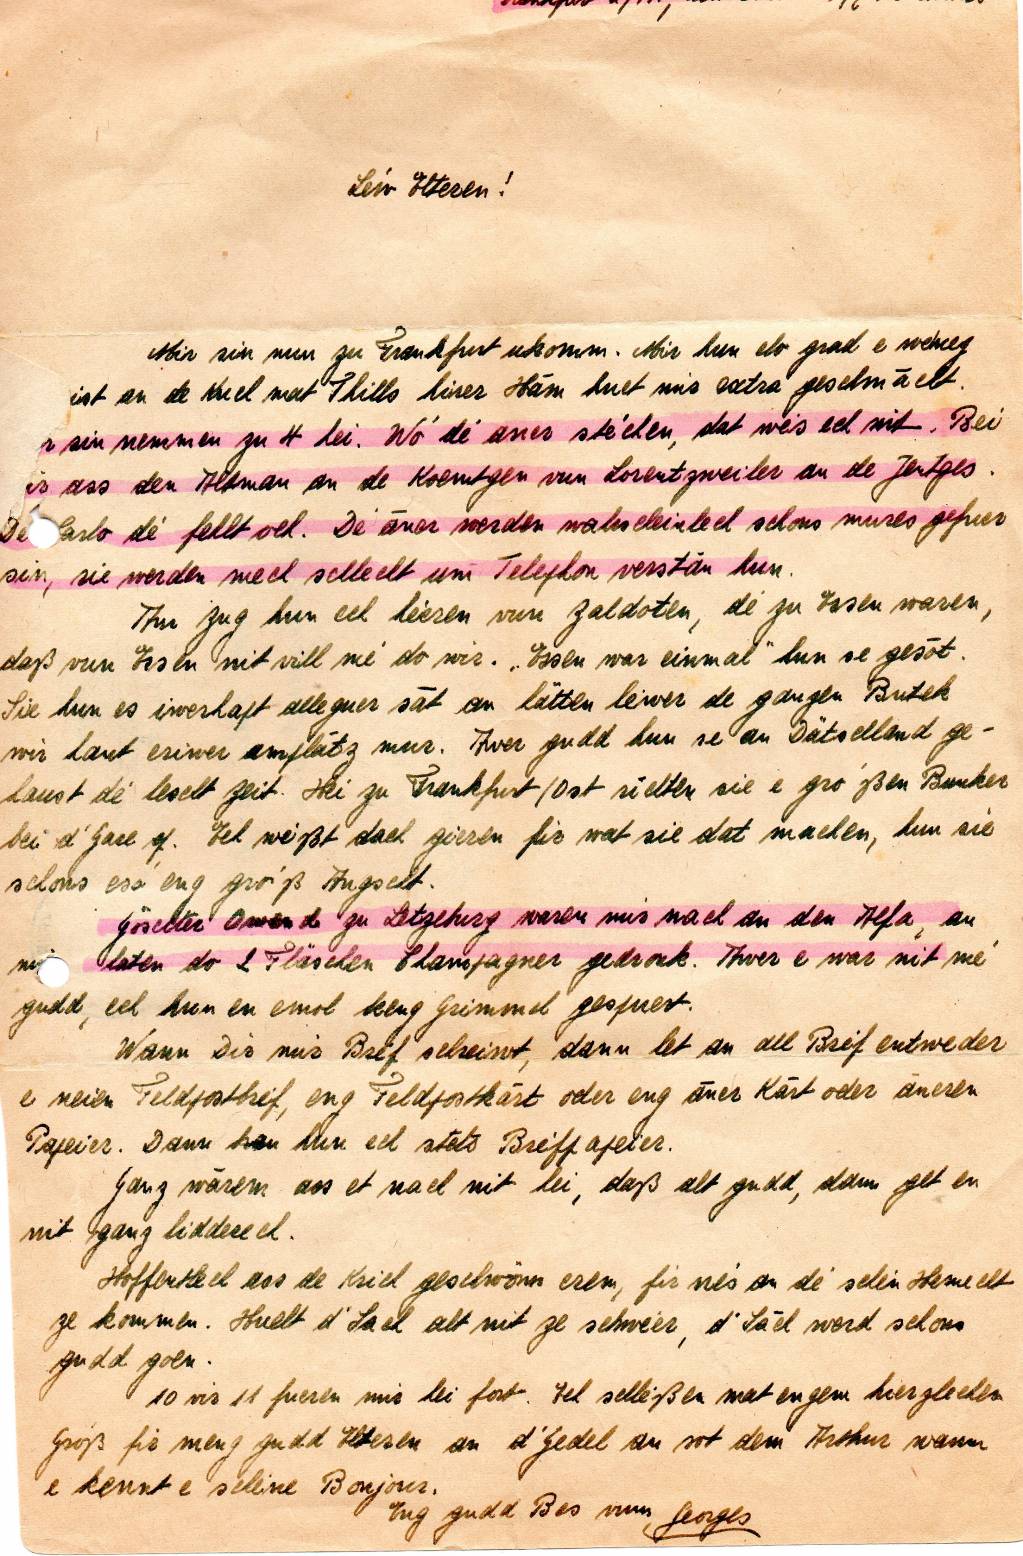 Leiw Elteren!
Mir sin nun zu Frankfurt ukomm. Mir hun elo grad e weineg
ist an de Kuel mat Thills hirer Häm huet mis extra geschmächt.
r sin nemmen zu 4 hei. Wó dé aner stéchen, dat wés ech nit. Bei
is ass den Altman an de Koentgen vun Lorentzweiler an de Jentges.
De Carlo dé fehlt och. Dé äner werden wahscheinlech schons mures gefuer
sin, sie werden mech schlecht um Telephon verstän hun.
Am Zug hun ech héeren vun Zaldoten, dé zu Essen waren,
daß vun Essen nit vill mé do wir. „Essen war einmal" hun se gesôt.
Sie hun es iwerhapt alleguer sät an lätten léiwer de gangen Butek
wir haut eriwer amplätz mur. Awer gudd hun se an Dätschland ge-
haust dé lescht Zeit. Hei zu Frankfurt/Ost richten sie e gro'ßen Bunker
bei d'Gare op. Ech wéißt dach gieren fir wat sie dat machen, hun sie
schons esó eng gró'ß Angscht.
Göschter Owend zu Letzeburg waren mir nach an den Alfa, an
mir haten do 2 Fläschen Champagner gedronk. Awer e war nit mé
gudd, ech hun en emol keng Grimmel gespuert.
Wann Dir mir Bréf schreiwt, dann let an all Bréf entweder
e neien Feldpostbréf, eng Feldpostkärt oder eng äner Kärt oder äneren
Papeier. Dann hun ech stets Bréifpapeier.
Ganz wärem ass et nach nit hei, daß alt gudd, dann get en
nit ganz lidderech.
Hoffentlech ass de Krich geschwönn erem, fir nés an dé schéin Hemecht
ze kommen. Huelt d'Sach alt nit ze schwéier, d'Säch werd schons
gudd goen.
10 vis 11 fueren mir hei fort. Ech schléißen mat engem hierzlechen
Gróß fir meng gudd Elteren an d'Gedel an sot dem Arthur wann
e kennt e schéine Bonjour.
Eng gudd Bes vum, Georges